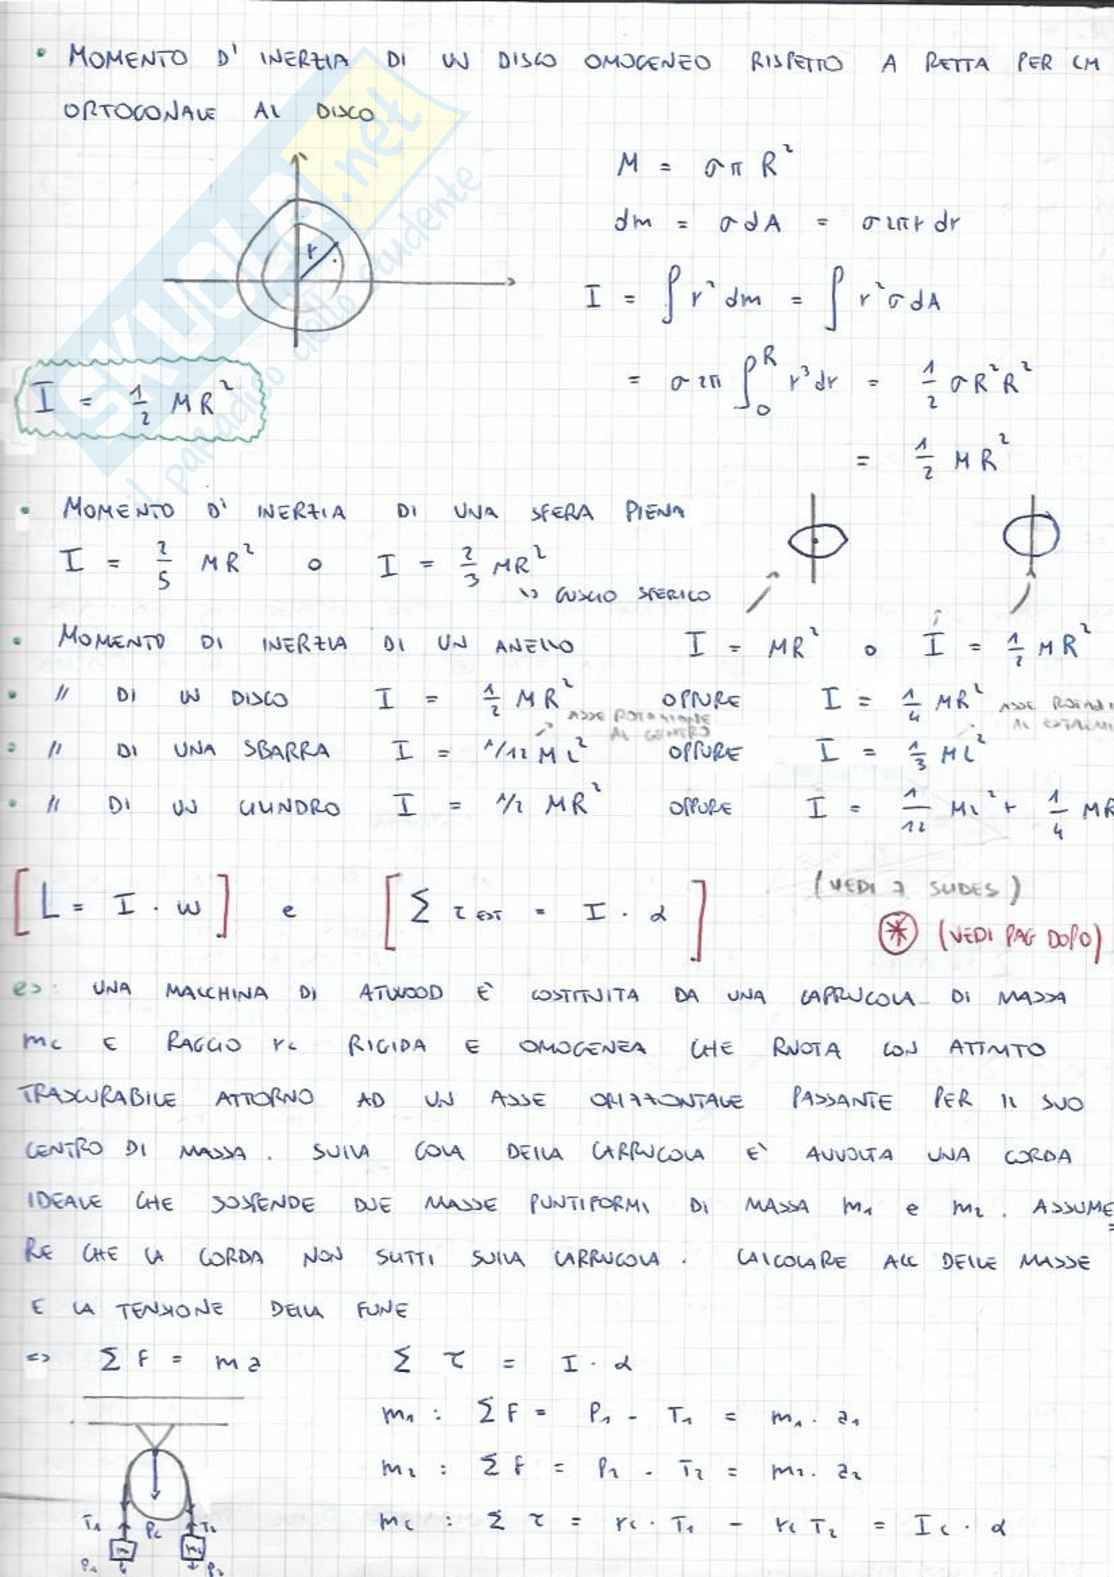 • MOMENTO D' INERZIA DI UN DISCO OMOGENEO RISPETTO A RETTA PER CM
ORTOGONALE AL DISCO
M = σπ R²
dm = σdA = σ2πr dr
r
I = ∫ r² dm = ∫ r²σ dA
= σ2π ∫₀ᴿ r³dr = 1/2 σR²R²
I = 1/2 MR²
= 1/2 MR²
• MOMENTO D' INERZIA DI UNA SFERA PIENA
I = 2/5 MR² o I = 2/3 MR²
↳ GUSCIO SFERICO
• MOMENTO DI INERZIA DI UN ANELLO I = MR² o I = 1/2 MR²
• " DI UN DISCO I = 1/2 MR² OPPURE I = 1/4 MR²
ASSE ROTAZIONE AL CENTRO
• " DI UNA SBARRA I = 1/12 ML² OPPURE I = 1/3 ML²
• " DI UN CILINDRO I = 1/2 MR² OPPURE I = 1/12 ML² + 1/4 MR
[L = I · w] e [Σ τ EST = I · α]
(VEDI 7 SLIDES)
* (VEDI PAG DOPO)
es: UNA MACCHINA DI ATWOOD E' COSTITUITA DA UNA CARRUCOLA DI MASSA
mc E RAGGIO rc RIGIDA E OMOGENEA CHE RUOTA CON ATTRITO
TRASCURABILE ATTORNO AD UN ASSE ORIZZONTALE PASSANTE PER IL SUO
CENTRO DI MASSA. SULLA GOLA DELLA CARRUCOLA E' AVVOLTA UNA CORDA
IDEALE CHE SOSPENDE DUE MASSE PUNTIFORMI DI MASSA m1 e m2. ASSUME=
RE CHE LA CORDA NON SLITTI SULLA CARRUCOLA. CALCOLARE ACC DELLE MASSE
E LA TENSIONE DELLA FUNE
=> Σ F = ma Σ τ = I · α
m1 : ΣF = P1 - T1 = m1 · a1
m2 : ΣF = P2 - T2 = m2 · a2
mc : Σ τ = rc · T1 - rc T2 = Ic · α
T1 Pc T2
m1 m2
P1 P2
SKUOLA.net
il paradiso dello studente